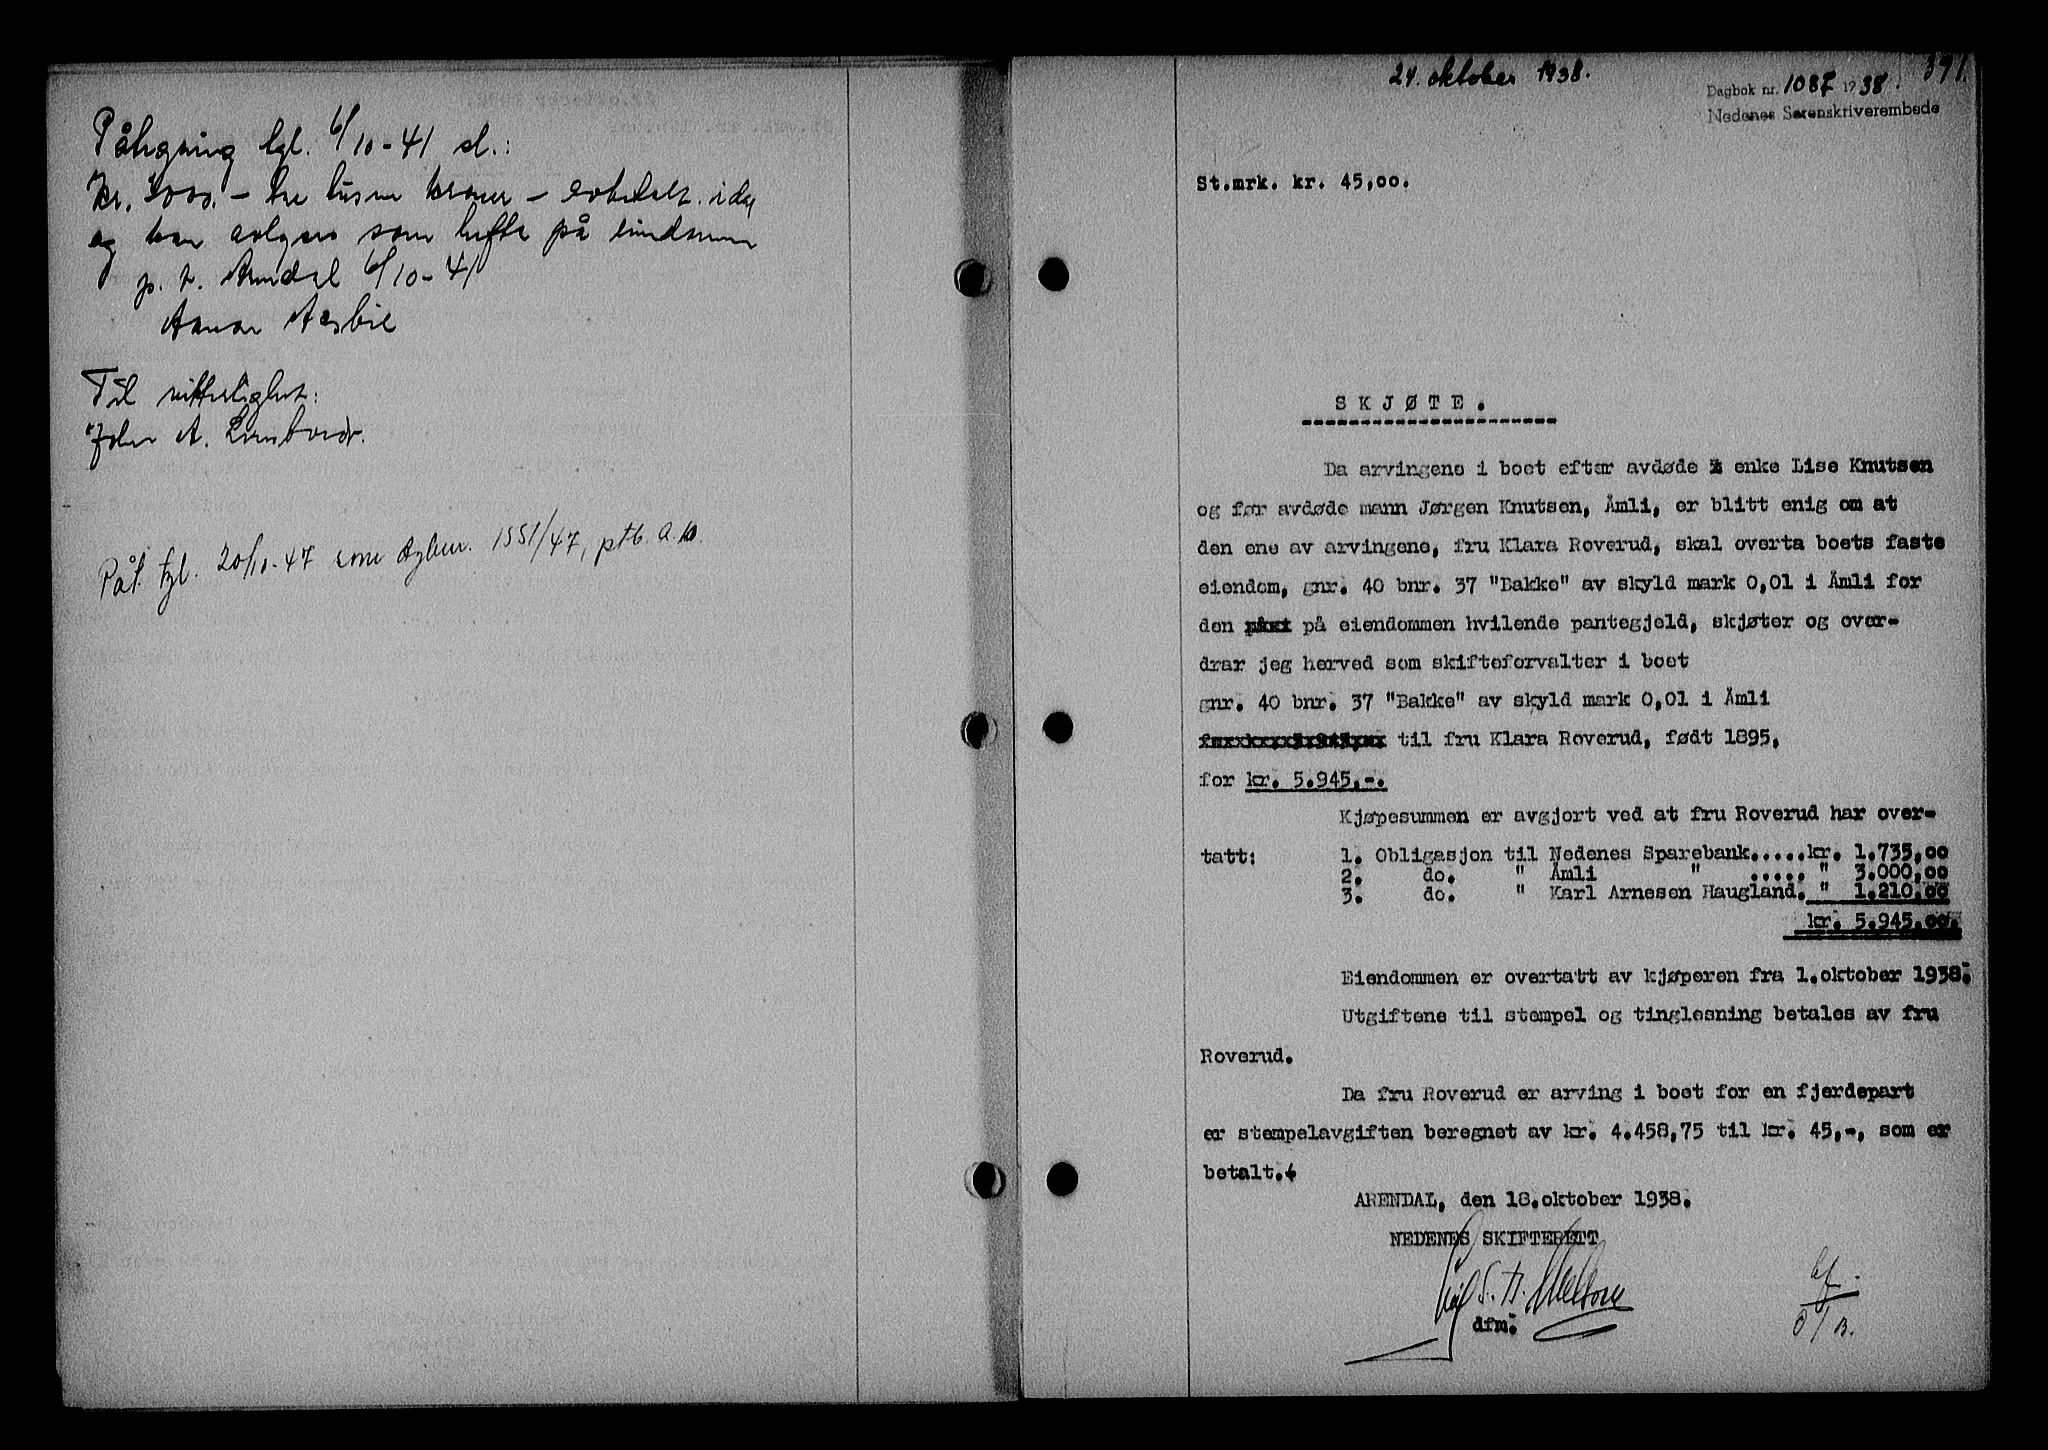 Påtegning tgl. 6/10-41 sl.:
Kr. 3000.- tre tusen kroner - avbetalt idag
og kan avlyses som hefte på eiendommen
p. t. Arendal 6/10-41
Til vitterlighet:
John A.
Påt. tgl. 20/10-47 som dagbnr. 1551/47, ptb. a. 10.
24. oktober 1938.
391.
Dagbok nr. 1087 1938.
Nedenes Sorenskriverembede
St.mrk. kr. 45,00.
SKJØTE.
Da arvingene i boet efter avdøde enke Lise Knutsen
og før avdøde mann Jørgen Knutsen, Åmli, er blitt enig om at
den ene av arvingene, fru Klara Roverud, skal overta boets faste
eiendom, gnr. 40 bnr. 37 "Bakke" av skyld mark 0,01 i Åmli for
den på eiendommen hvilende pantegjeld, skjøter og over-
drar jeg herved som skifteforvalter i boet
gnr. 40 bnr. 37 "Bakke" av skyld mark 0,01 i Åmli
til fru Klara Roverud, født 1895,
for kr. 5.945,-.
Kjøpesummen er avgjort ved at fru Roverud har over-
tatt: 1. Obligasjon til Nedenes Sparebank.....kr. 1.735,00
2. do. " Åmli " ..... " 3.000,00
3. do. " Karl Arnesen Haugland. " 1.210,00
kr. 5.945,00.
Eiendommen er overtatt av kjøperen fra 1.oktober 1938.
Utgiftene til stempel og tinglesning betales av fru
Roverud.
Da fru Roverud er arving i boet for en fjerdepart
er stempelavgiften beregnet av kr. 4.458,75 til kr. 45,-, som er
betalt.
ARENDAL, den 18.oktober 1938.
NEDENES SKIFTERETT
dfm.